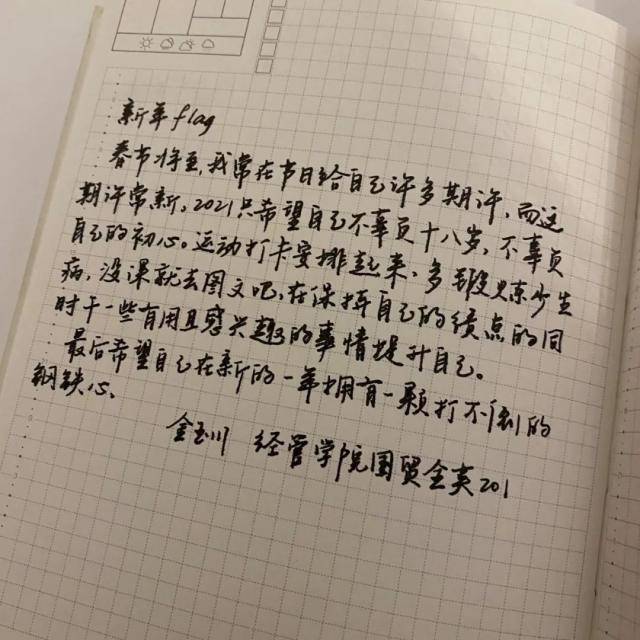 新年flag
春节将至,我常在节日给自己许多期许,而这
期许常新。2021只希望自己不辜负十八岁,不辜负
自己的初心。运动打卡安排起来,多锻炼少生
病,没课就去图文吧,在保持自己的绩点的同
时干一些有用且感兴趣的事情提升自己。
最后希望自己在新的一年拥有一颗打不倒的
钢铁心。
金玉川 经管学院国贸全英201